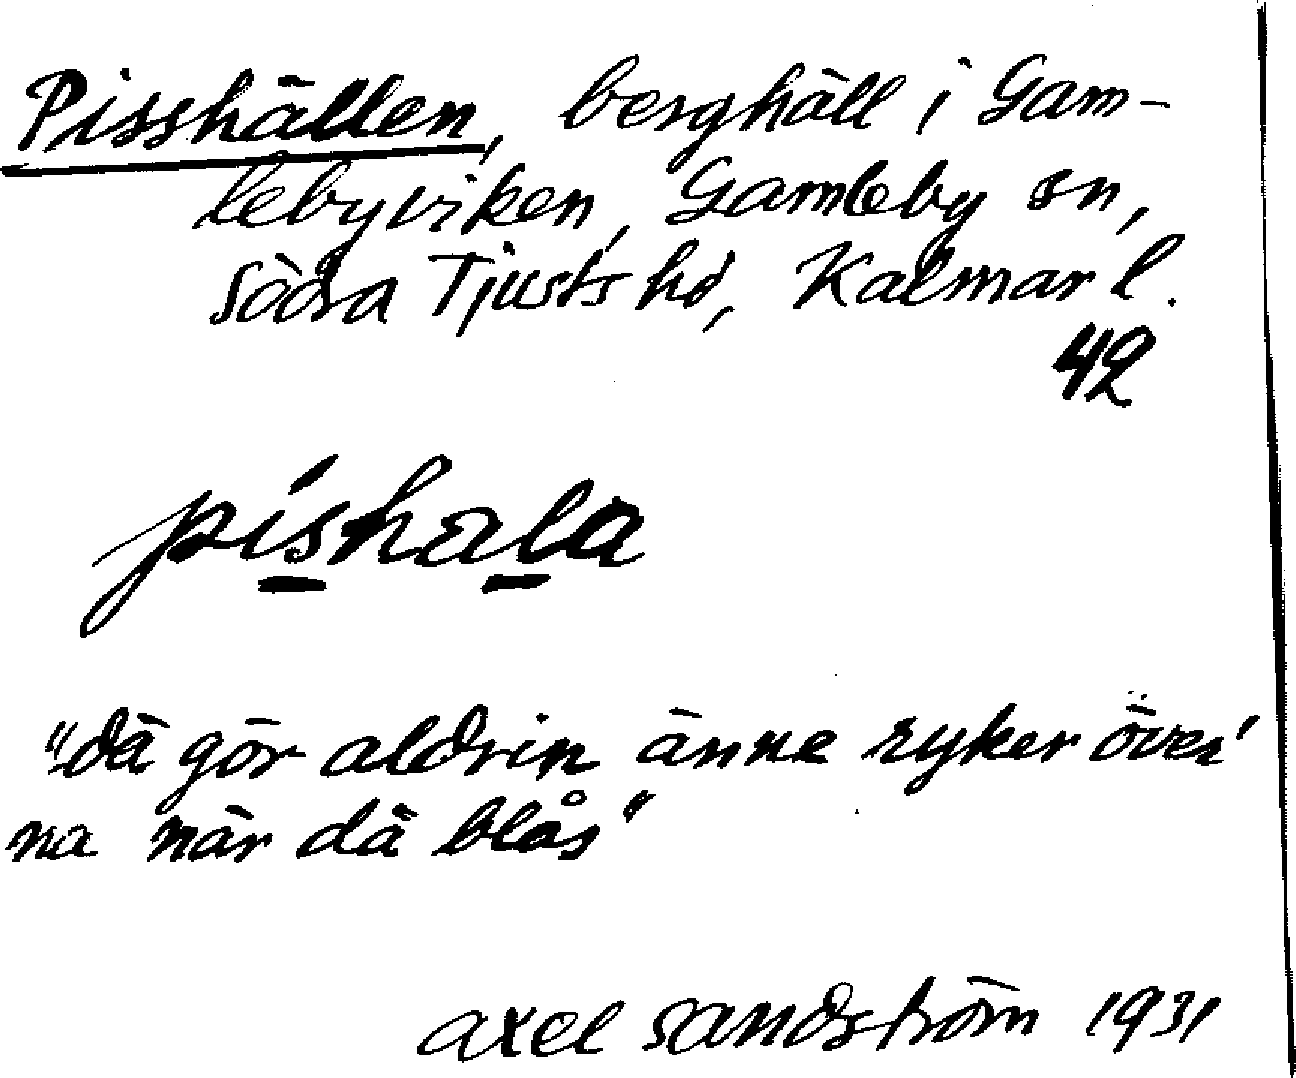 Pisshällen, berghäll i Gam-
lebyviken, Gamleby sn,
Södra Tjusts hd, Kalmar l.
42
píshala
"dä gör aldrin änne ryker över'
na när dä blås"
axel sandström 1931